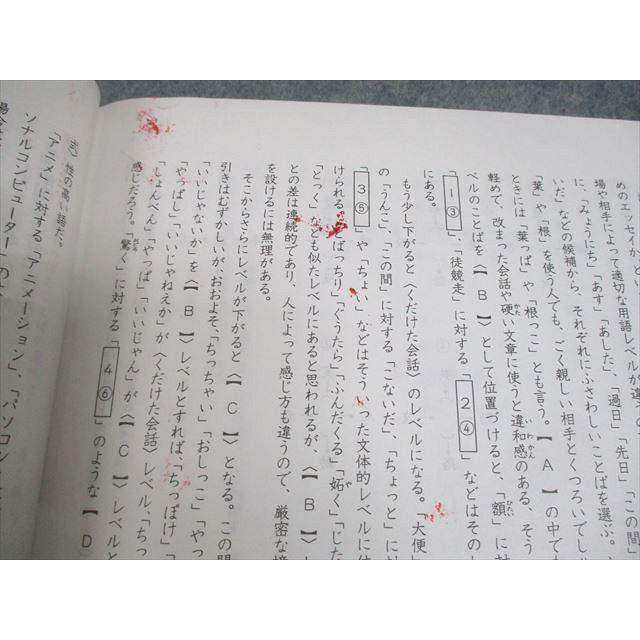 めのエッセイか、い
場や相手によって適切な用語レベルが違
に、「みょうにち」「あす」「あした」、「過日」「先日」「この間」
いだ」などの候補から、それぞれにふさわしいことばを選ぶ。
「葉」や「根」を使う人でも、ごく親しい相手とくつろいでし
ときには「葉っぱ」や「根っこ」とも言う。【 A 】の中で
軽めて、改まった会話や硬い文章に使うと違和感のある、そう
ベルのことばを【 B 】として位置づけると、「額」に対
「 1 ③ 」、「徒競走」に対する「 2 ④ 」などはそのレ
にある。
もう少し下がると〈くだけた会話〉のレベルになる。「大便」
の「うんこ」、「この間」に対する「こないだ」、「ちょっと」に
「 3 ⑤ 」や「ちょい」などはそういった文体的レベルに位
けられる。「とばっちり」「ぐうたら」「ふんだくる」「妬く」「じた
「とっく」なども似たレベルにあると思われるが、〈【 B 】〉
との差は連続的であり、人によって感じ方も違うので、厳密な境
を設けるには無理がある。
そこからさらにレベルが下がると〈【 C 】〉となる。この間
引きはむずかしいが、おおよそ、「ちっちゃい」「おしっこ」「やっ
「いいじゃないか」を〈【 B 】〉レベルとすれば、「ちっぽけ」
「やっぱし」「いいじゃねえか」が〈くだけた会話〉レベル、「ちっ
「しょんべん」「やっぱ」「いいじゃん」が〈【 C 】〉レベルと
感じだろう。「驚く」に対する「 4 ⑥ 」のような【 D
性の高い語だ。
「アニメ」に対する「アニメーション」、「パソコン」
ソナルコンピューター」のよ